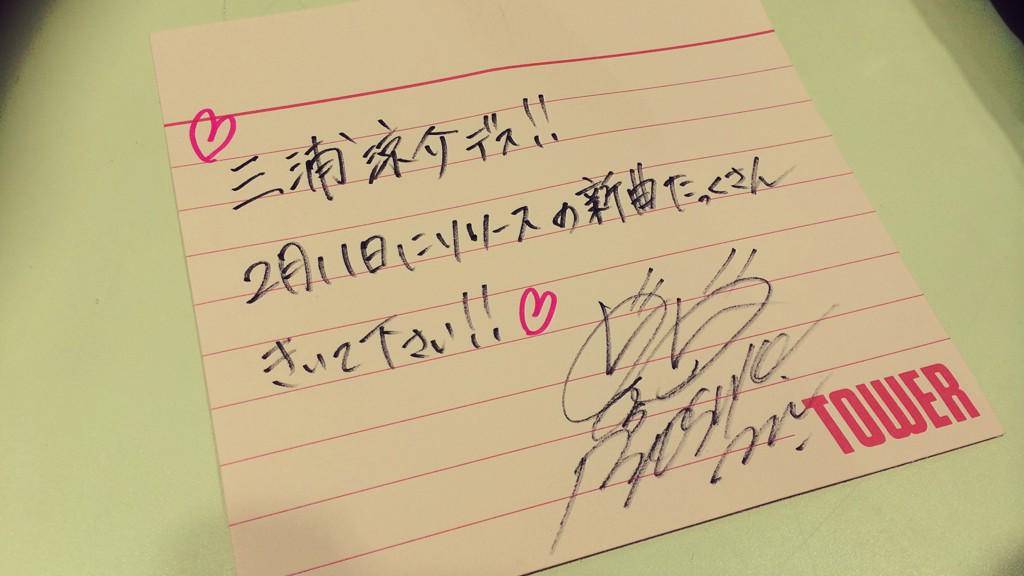 三浦涼介デス!!
2月11日にリリースの新曲たっくさん
きいて下さい!!
TOWER